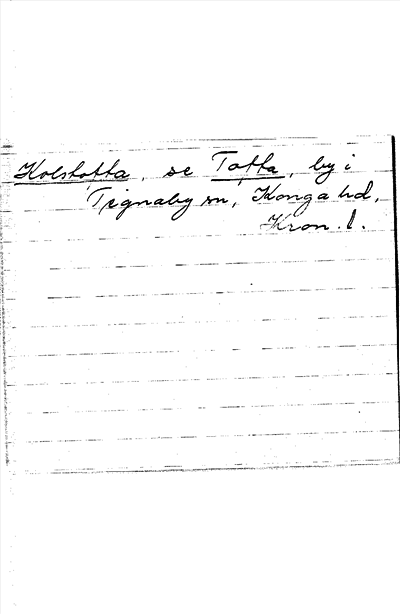 Kolstofta, se Tofta, by i
Tegnaby sn, Konga hd,
Kron. l.